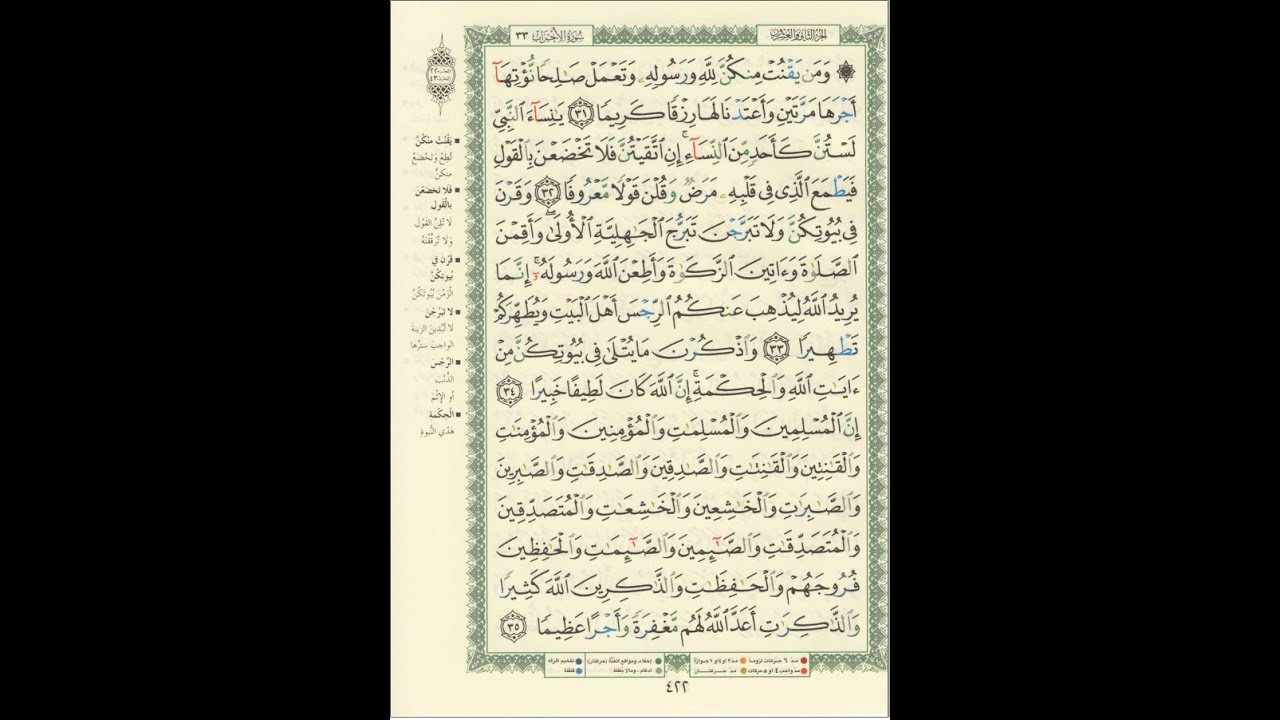 الجزء الثاني والعشرون
سورة الأحزاب ٣٣
۞ وَمَن يَقْنُتْ مِنكُنَّ لِلَّهِ وَرَسُولِهِۦ وَتَعْمَلْ صَٰلِحًا نُّؤْتِهَآ
أَجْرَهَا مَرَّتَيْنِ وَأَعْتَدْنَا لَهَا رِزْقًا كَرِيمًا ٣١ يَٰنِسَآءَ ٱلنَّبِيِّ
لَسْتُنَّ كَأَحَدٍ مِّنَ ٱلنِّسَآءِ ۚ إِنِ ٱتَّقَيْتُنَّ فَلَا تَخْضَعْنَ بِٱلْقَوْلِ
فَيَطْمَعَ ٱلَّذِى فِى قَلْبِهِۦ مَرَضٌ وَقُلْنَ قَوْلًا مَّعْرُوفًا ٣٢ وَقَرْنَ
فِى بُيُوتِكُنَّ وَلَا تَبَرَّجْنَ تَبَرُّجَ ٱلْجَٰهِلِيَّةِ ٱلْأُولَىٰ ۖ وَأَقِمْنَ
ٱلصَّلَوٰةَ وَءَاتِينَ ٱلزَّكَوٰةَ وَأَطِعْنَ ٱللَّهَ وَرَسُولَهُۥٓ ۚ إِنَّمَا
يُرِيدُ ٱللَّهُ لِيُذْهِبَ عَنكُمُ ٱلرِّجْسَ أَهْلَ ٱلْبَيْتِ وَيُطَهِّرَكُمْ
تَطْهِيرًا ٣٣ وَٱذْكُرْنَ مَا يُتْلَىٰ فِى بُيُوتِكُنَّ مِنْ
ءَايَٰتِ ٱللَّهِ وَٱلْحِكْمَةِ ۚ إِنَّ ٱللَّهَ كَانَ لَطِيفًا خَبِيرًا ٣٤
إِنَّ ٱلْمُسْلِمِينَ وَٱلْمُسْلِمَٰتِ وَٱلْمُؤْمِنِينَ وَٱلْمُؤْمِنَٰتِ
وَٱلْقَٰنِتِينَ وَٱلْقَٰنِتَٰتِ وَٱلصَّٰدِقِينَ وَٱلصَّٰدِقَٰتِ وَٱلصَّٰبِرِينَ
وَٱلصَّٰبِرَٰتِ وَٱلْخَٰشِعِينَ وَٱلْخَٰشِعَٰتِ وَٱلْمُتَصَدِّقِينَ
وَٱلْمُتَصَدِّقَٰتِ وَٱلصَّٰٓئِمِينَ وَٱلصَّٰٓئِمَٰتِ وَٱلْحَٰفِظِينَ
فُرُوجَهُمْ وَٱلْحَٰفِظَٰتِ وَٱلذَّٰكِرِينَ ٱللَّهَ كَثِيرًا
وَٱلذَّٰكِرَٰتِ أَعَدَّ ٱللَّهُ لَهُم مَّغْفِرَةً وَأَجْرًا عَظِيمًا ٣٥
■ يَقْنُتْ مِنْكُنَّ
تُطِعْ وَتَخْضَعْ
مِنكُنَّ
■ فَلَا تَخْضَعْنَ
بِالْقَوْلِ
لَا تُلِنَّ القَوْلَ
وَلَا تُرَقِّقْنَهُ
■ قَرْنَ فِي
بُيُوتِكُنَّ
الْزَمْنَ بُيُوتَكُنَّ
■ لَا تَبَرَّجْنَ
لَا تُبْدِينَ الزِينَةَ
الواجِبَ سَترُها
■ الرِّجْسَ
الذَّنْبَ
أو الإثْمَ
■ الْحِكْمَةِ
هَدْيِ النُّبوةِ
مد ٦ حركات لزوماً مد ٢ أو ٤ أو ٦ جوازاً
مد واجب ٤ أو ٥ حركات مد حركتان
إخفاء، ومواقع الغنة (حركتان)
ادغام، وما لا يلفظ
تفخيم الراء
قلقلة
٤٢٢